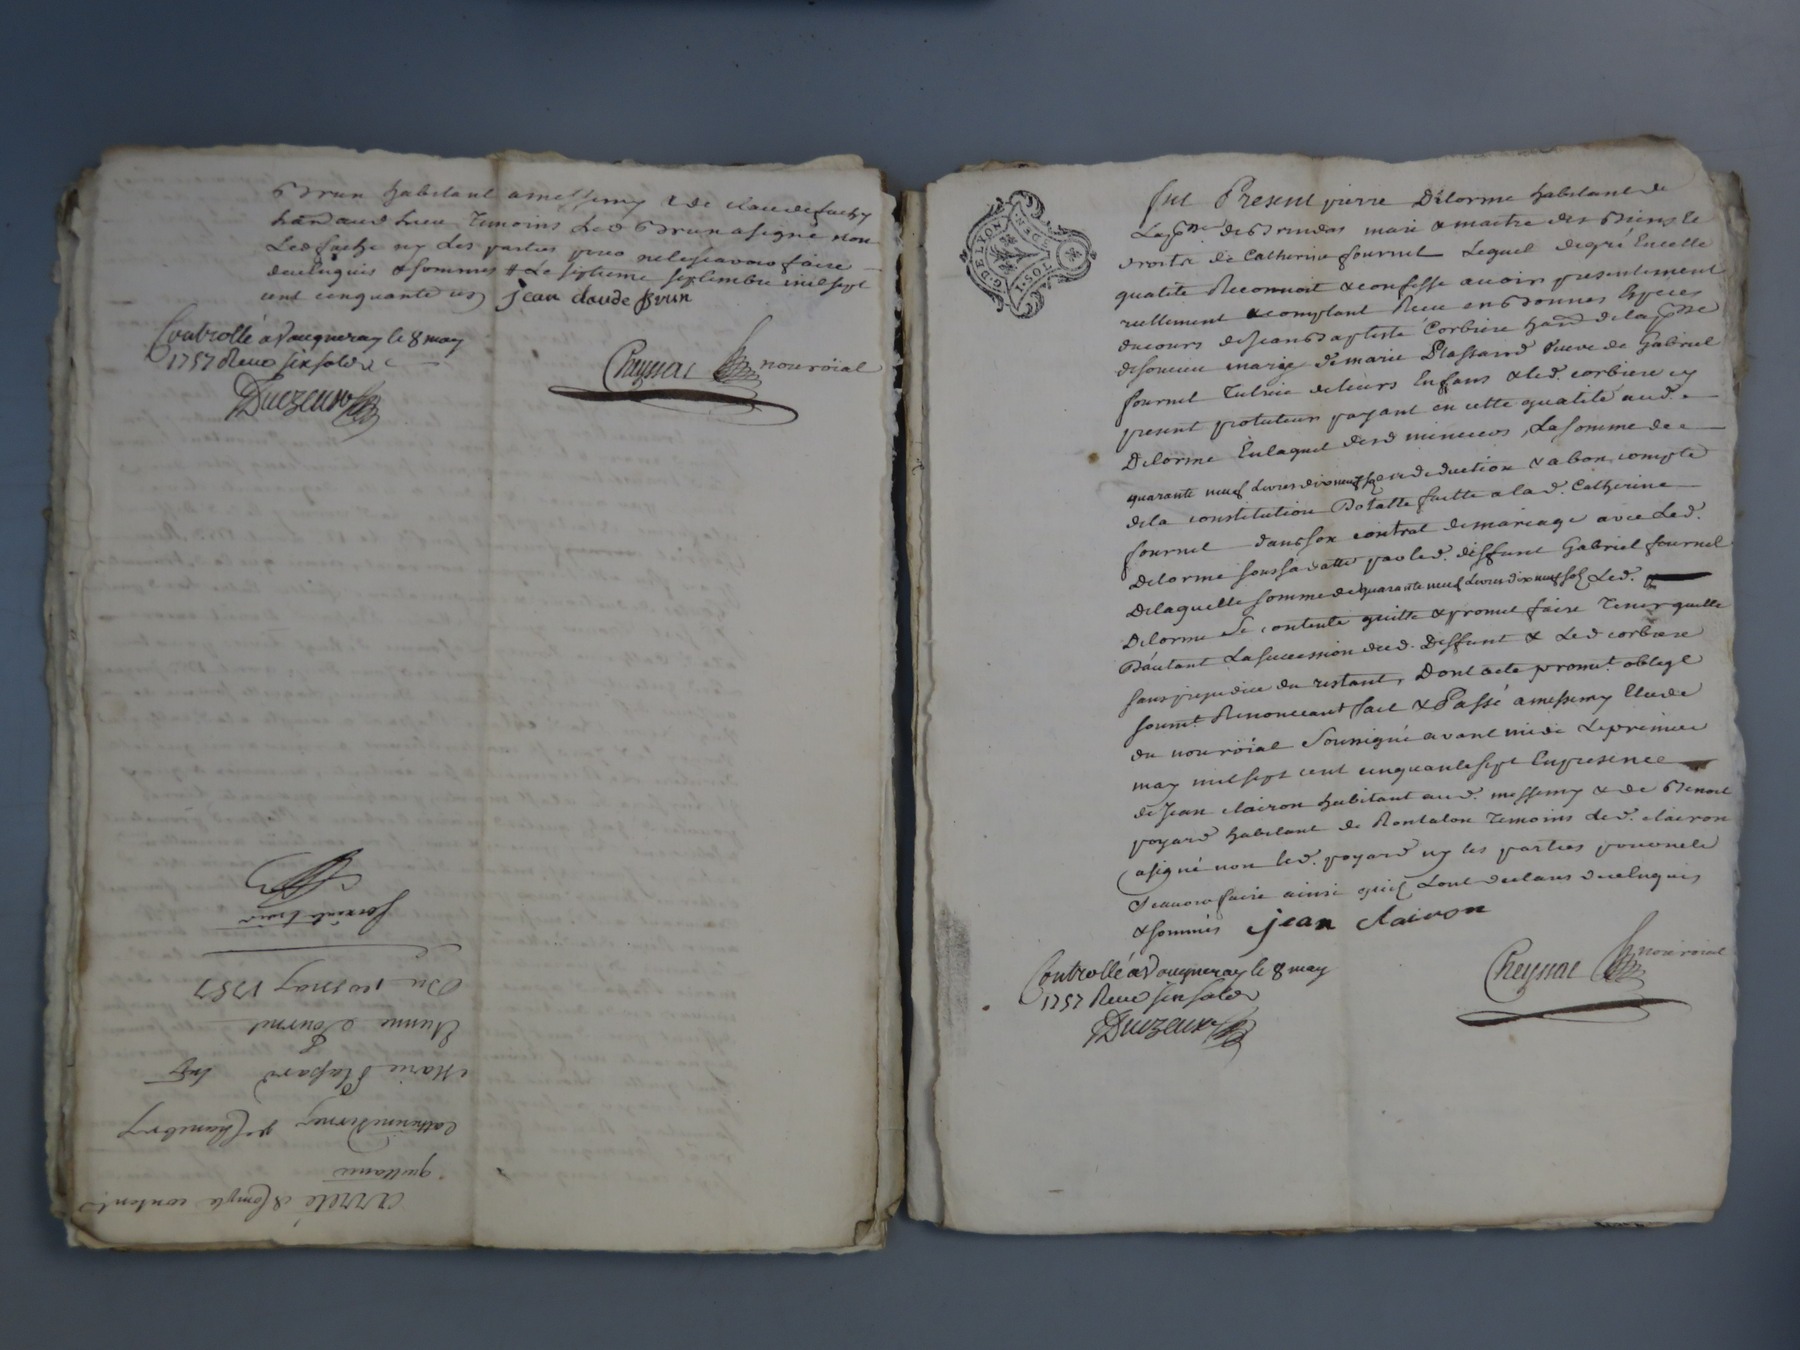 Brun habitant a messimy & de claude fachy
hãnd aud. lieu temoins Led Brun a signé non
Led fachy ny les parties pour ne le scavoir faire
de ce enquis & sommés # Le septieme septembre mil sept
cent cinquante six jean claude brun
Controllé a Vaugneray le 8 may
1757 Receu six sols
Cheynac nore roïal
Duezeure
arrelé & Compte contents
guillaume
Catherine Vernay Ve Chambry
Marie Plassard
Etienne Fournel
Du 1er may 1757
fut Present pierre Delorme habitant de
La psse de Brindas mari & maitre des Biens &
droits de Catherine fournel Lequel de gré En cette
qualité Reconnoit & confesse avoir presentement
reellement & comptant Receu en Bonnes Especes
du cours de Jean Baptiste Corbiere hãnd de la psse
de Soucieu marie de marie Plassard veuve de Gabriel
fournel Tutrice de leurs Enfans & led. corbiere cy
present protuteur payant en cette qualité aud.
Delorme En laquit desd mineurs, La somme de
quarante neuf Livres dix neuf sols en deduction & a bon compte
de la constitution Dotalle faitte a lad. Catherine
fournel dans son contrat de mariage avec Led.
Delorme par led. deffunt Gabriel fournel
De laquelle somme de quarante neuf Livres dix neuf sols Led.
Delorme Se contente quitte & promet faire Tenir quitte
D'autant La succession dud. Deffunt & Led corbiere
sans prejudice du restant, Dont acte promt. oblige
soumt. Renonceant fait & Passé a messimy Etude
du nore roïal Soussigné avant midi Le premier
may mil sept cent cinquante sept En presence
de Jean clairon habitant aud. messimy & de Benoit
poyard habitant de Rontalon Temoins Led. clairon
a signé non led. poyard ny les parties pour ne le
Scavoir faire ainsi quils L'ont declaré de ce Enquis
& sommés jean clairon
Controllé a Vaugneray le 8 may
1757 Receu six sols
Cheynac nore roial
Duezeure
G. DE LYON
1. SOL